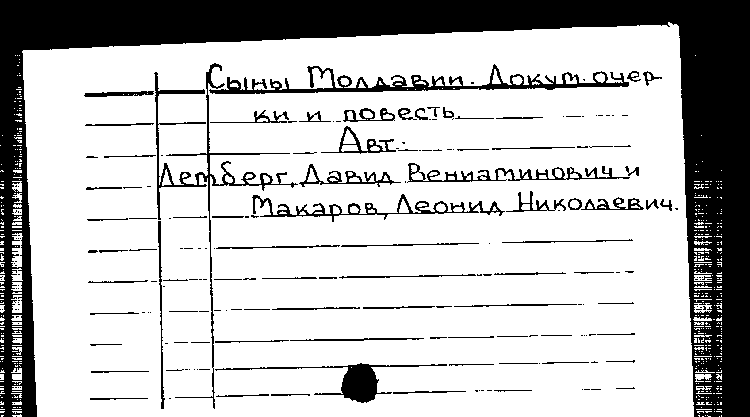 Сыны Молдавии. Докум. очер-
ки и повесть.
Авт.:
Лемберг, Давид Вениаминович и
Макаров, Леонид Николаевич.